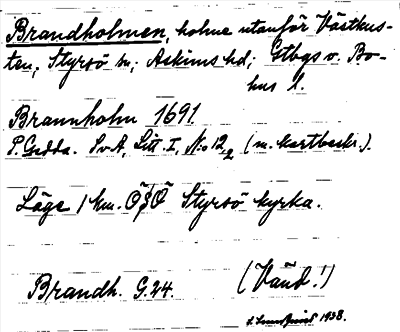 Brandholmen, holme utanför Västkus-
ten, Styrsö sn; Askims hd; Gtbgs o. Bo-
hus l.
Brannholm 1691.
P. Gedda. SvA, Litt I, N:o 12 2 (m. kartbeskr.).
Läge 1 km. ÖSÖ Styrsö kyrka.
Brandh. G.24.
(Vänd!)
1938.